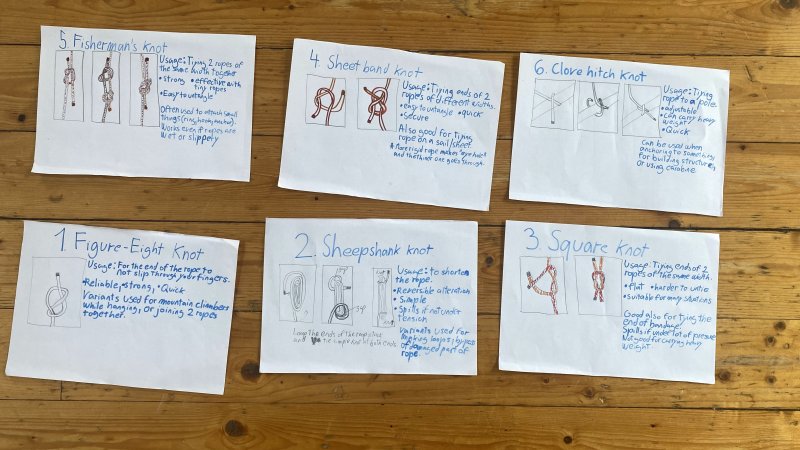 5. Fisherman's knot
Usage: Tying 2 ropes of
the same width together
• strong • effective with
tiny ropes
• Easy to untangle
Often used to attach small
things
Works even if ropes are
wet or slippery
4. Sheet band knot
Usage: Tying ends of 2
ropes of different widths.
• easy to untangle • quick
• Secure
Also good for tying
rope on a sail/sheet.
A more rigid rope makes
and the thiner one goes through.
6. Clove hitch knot
Usage: Tying
rope to a pole.
• adjustable
• Can carry heavy
weight
• Quick
Can be used when
anchoring to something,
for building structures,
or using carabine.
1 Figure-Eight Knot
Usage: For the end of the rope to
not slip through your fingers.
• Reliable, strong, • Quick
Variants used for mountain climbers
while hanging, or joining 2 ropes
together.
2. Sheepshank knot
Usage: to shorten
the rope.
• Reversible alteration
• Simple
• Spills if not under
tension
Variants used for
making loops, bypass
of damaged part of
rope.
Loop the ends of the rope
and tie at both ends.
3. Square knot
Usage: Tying ends of 2
ropes of the same width.
• flat • harder to untie
• suitable for many situations
Good also for tying the
end of bandage.
Spills if under lot of pressure
Not good for carrying heavy
weight